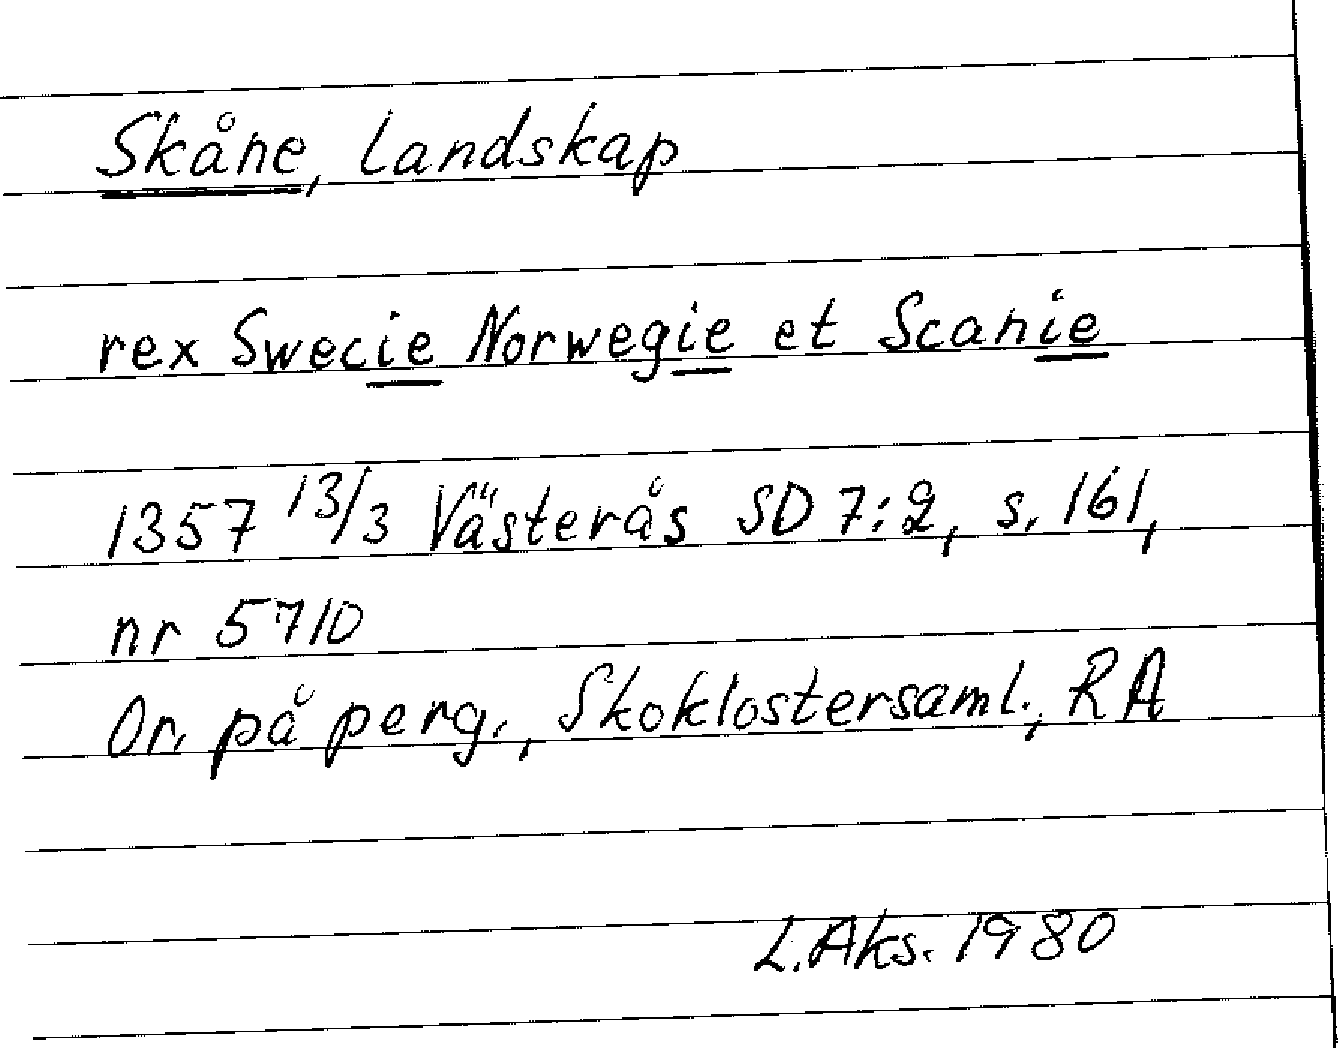 Skåne, landskap
rex Swecie Norwegie et Scanie
1357 13/3 Västerås SD 7:2, s. 161,
nr 5710
Or. på perg., Skoklostersaml., RA
L.Aks. 1980